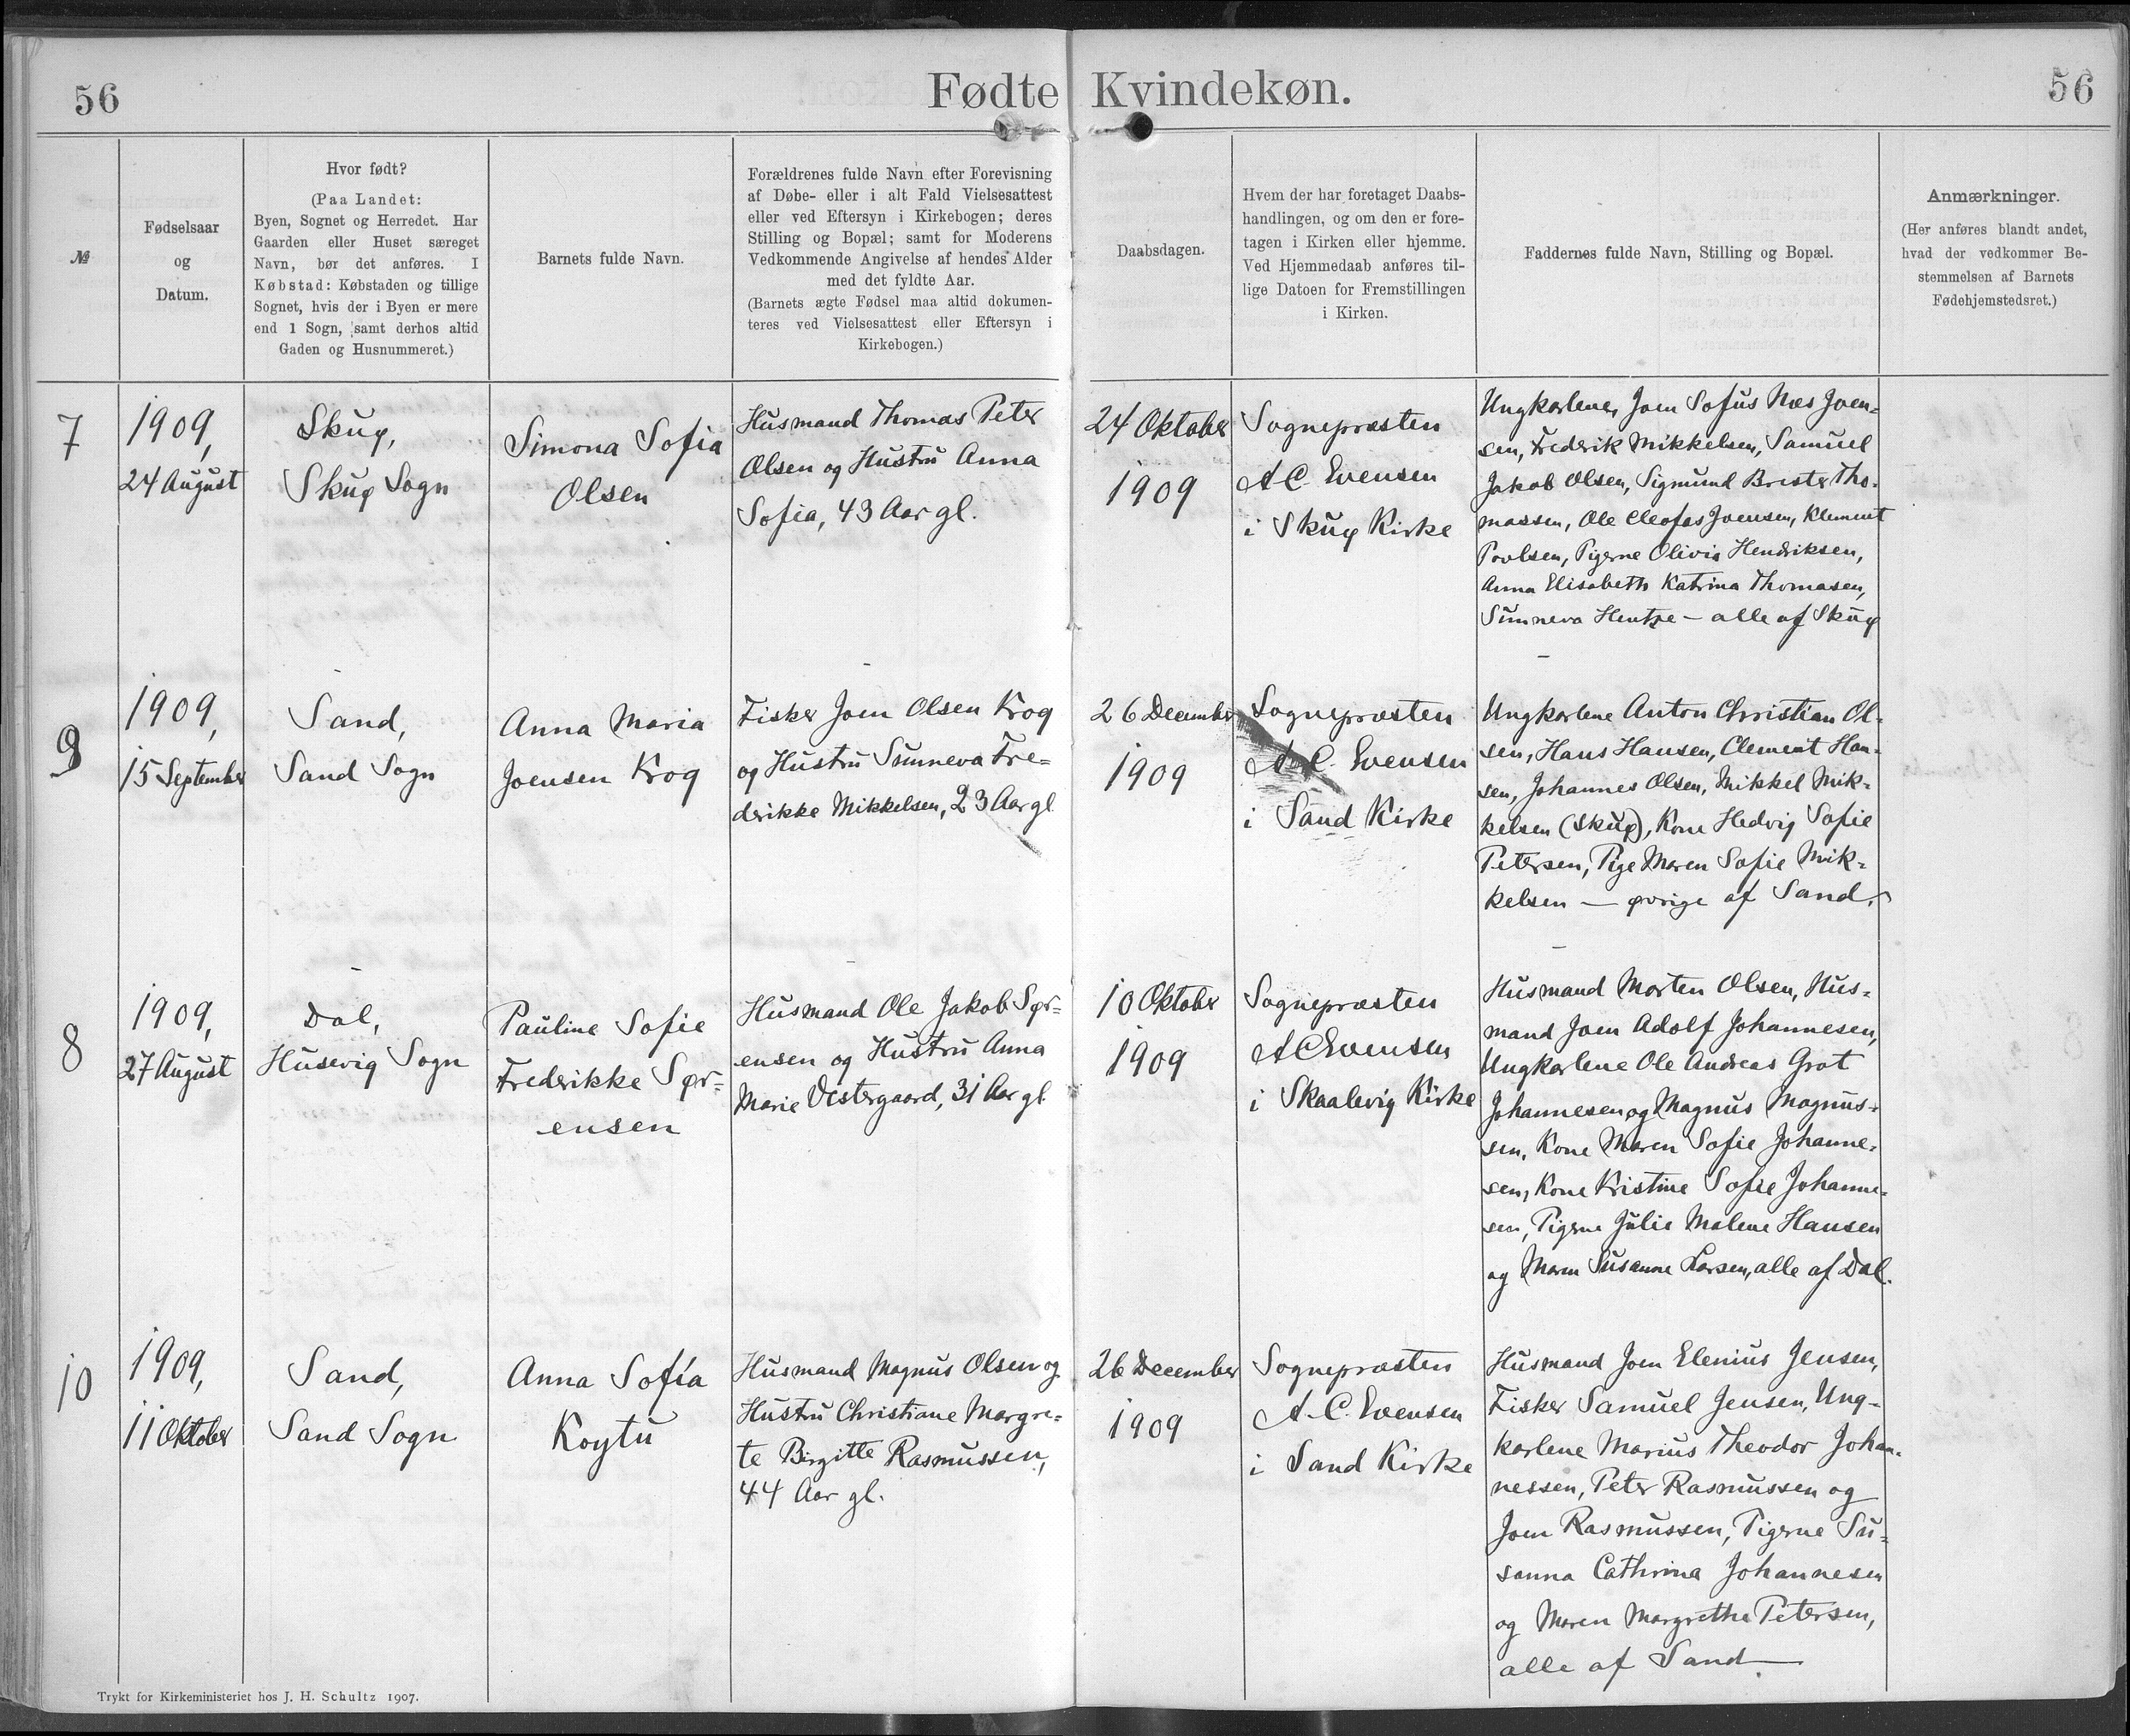 56
Fødte Kvindekøn.
56
№
Fødselsaar
og
Datum.
Hvor født?
(Paa Landet:
Byen, Sognet og Herredet. Har
Gaarden eller Huset særeget
Navn, bør det anføres. I
Købstad: Købstaden og tillige
Sognet, hvis der i Byen er mere
end 1 Sogn, samt derhos altid
Gaden og Husnummeret.)
Barnets fulde Navn.
Forældrenes fulde Navn efter Forevisning
af Døbe- eller i alt Fald Vielsesattest
eller ved Eftersyn i Kirkebogen; deres
Stilling og Bopæl; samt for Moderens
Vedkommende Angivelse af hendes Alder
med det fyldte Aar.
(Barnets ægte Fødsel maa altid dokumen-
teres ved Vielsesattest eller Eftersyn i
Kirkebogen.)
Daabsdagen.
Hvem der har foretaget Daabs-
handlingen, og om den er fore-
tagen i Kirken eller hjemme.
Ved Hjemmedaab anføres til-
lige Datoen for Fremstillingen
i Kirken.
Faddernes fulde Navn, Stilling og Bopæl.
Anmærkninger.
(Her anføres blandt andet,
hvad der vedkommer Be-
stemmelsen af Barnets
Fødehjemstedsret.)
7
1909,
24 August
Skuø,
Skuø Sogn
Simona Sofia
Olsen
Husmand Thomas Peter
Olsen og Hustru Anna
Sofia, 43 Aar gl.
24 Oktober
1909
Sognepræsten
A C. Evensen
i Skuø Kirke
Ungkarlene, Joen Sofus Næs Joen-
sen, Frederik Mikkelsen, Samuel
Jakob Olsen, Sigmund Brester Tho-
massen, Ole Cleofas Joensen, Klement
Poulsen, Pigerne Olivia Hendriksen,
Anna Elisabeth Katrina Thomasen,
Sunneva Hentze – alle af Skuø
9
1909,
15 September
Sand,
Sand Sogn
Anna Maria
Joensen Krog
Fisker Joen Olsen Krog
og Hustru Sunneva Fre-
derikke Mikkelsen, 23 Aar gl
26 December
1909
Sognepræsten
A. C. Evensen
i Sand Kirke
Ungkarlene Anton Christian Ol-
sen, Hans Hansen, Clement Han-
sen, Johannes Olsen, Mikkel Mik-
kelsen (Skuø), Kone Hedvig Sofie
Petersen, Pige Maren Sofie Mik-
kelsen — øvrige af Sand.
8
1909,
27 August
Dal,
Husevig Sogn
Pauline Sofie
Frederikke Sør-
ensen
Husmand Ole Jakob Sør-
ensen og Hustru Anna
Marie Vestergaard, 31 Aar gl
10 Oktober
1909
Sognepræsten
A C Evensen
i Skaalevig Kirke
Husmand Morten Olsen, Hus-
mand Joen Adolf Johannesen,
Ungkarlene Ole Andreas Grot
Johannesen og Magnus Magnus-
sen, Kone Maren Sofie Johanne-
sen, Kone Kristine Sofie Johanne-
sen, Pigerne Julie Malene Hansen
og Maren Susanne Larsen, alle af Dal.
10
1909,
11 Oktober
Sand,
Sand Sogn
Anna Sofía
Koytu
Husmand Magnus Olsen og
Hustru Christiane Margre-
te Birgitte Rasmussen,
44 Aar gl.
26 December
1909
Sognepræsten
A. C. Evensen
i Sand Kirke
Husmand Joen Elenius Jensen,
Fisker Samuel Jensen, Ung-
karlene Marius Theodor Johan-
nessen, Peter Rasmussen og
Joen Rasmussen, Pigerne Su-
sanna Cathrina Johannesen
og Maren Margrethe Petersen,
alle af Sand —
Trykt for Kirkeministeriet hos J. H. Schultz 1907.